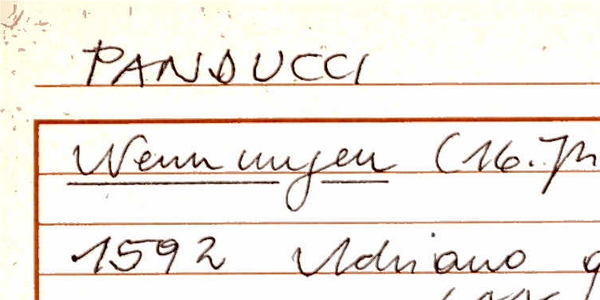 PANDUCCI
Nennungen (16. Jh
1592 Adriano